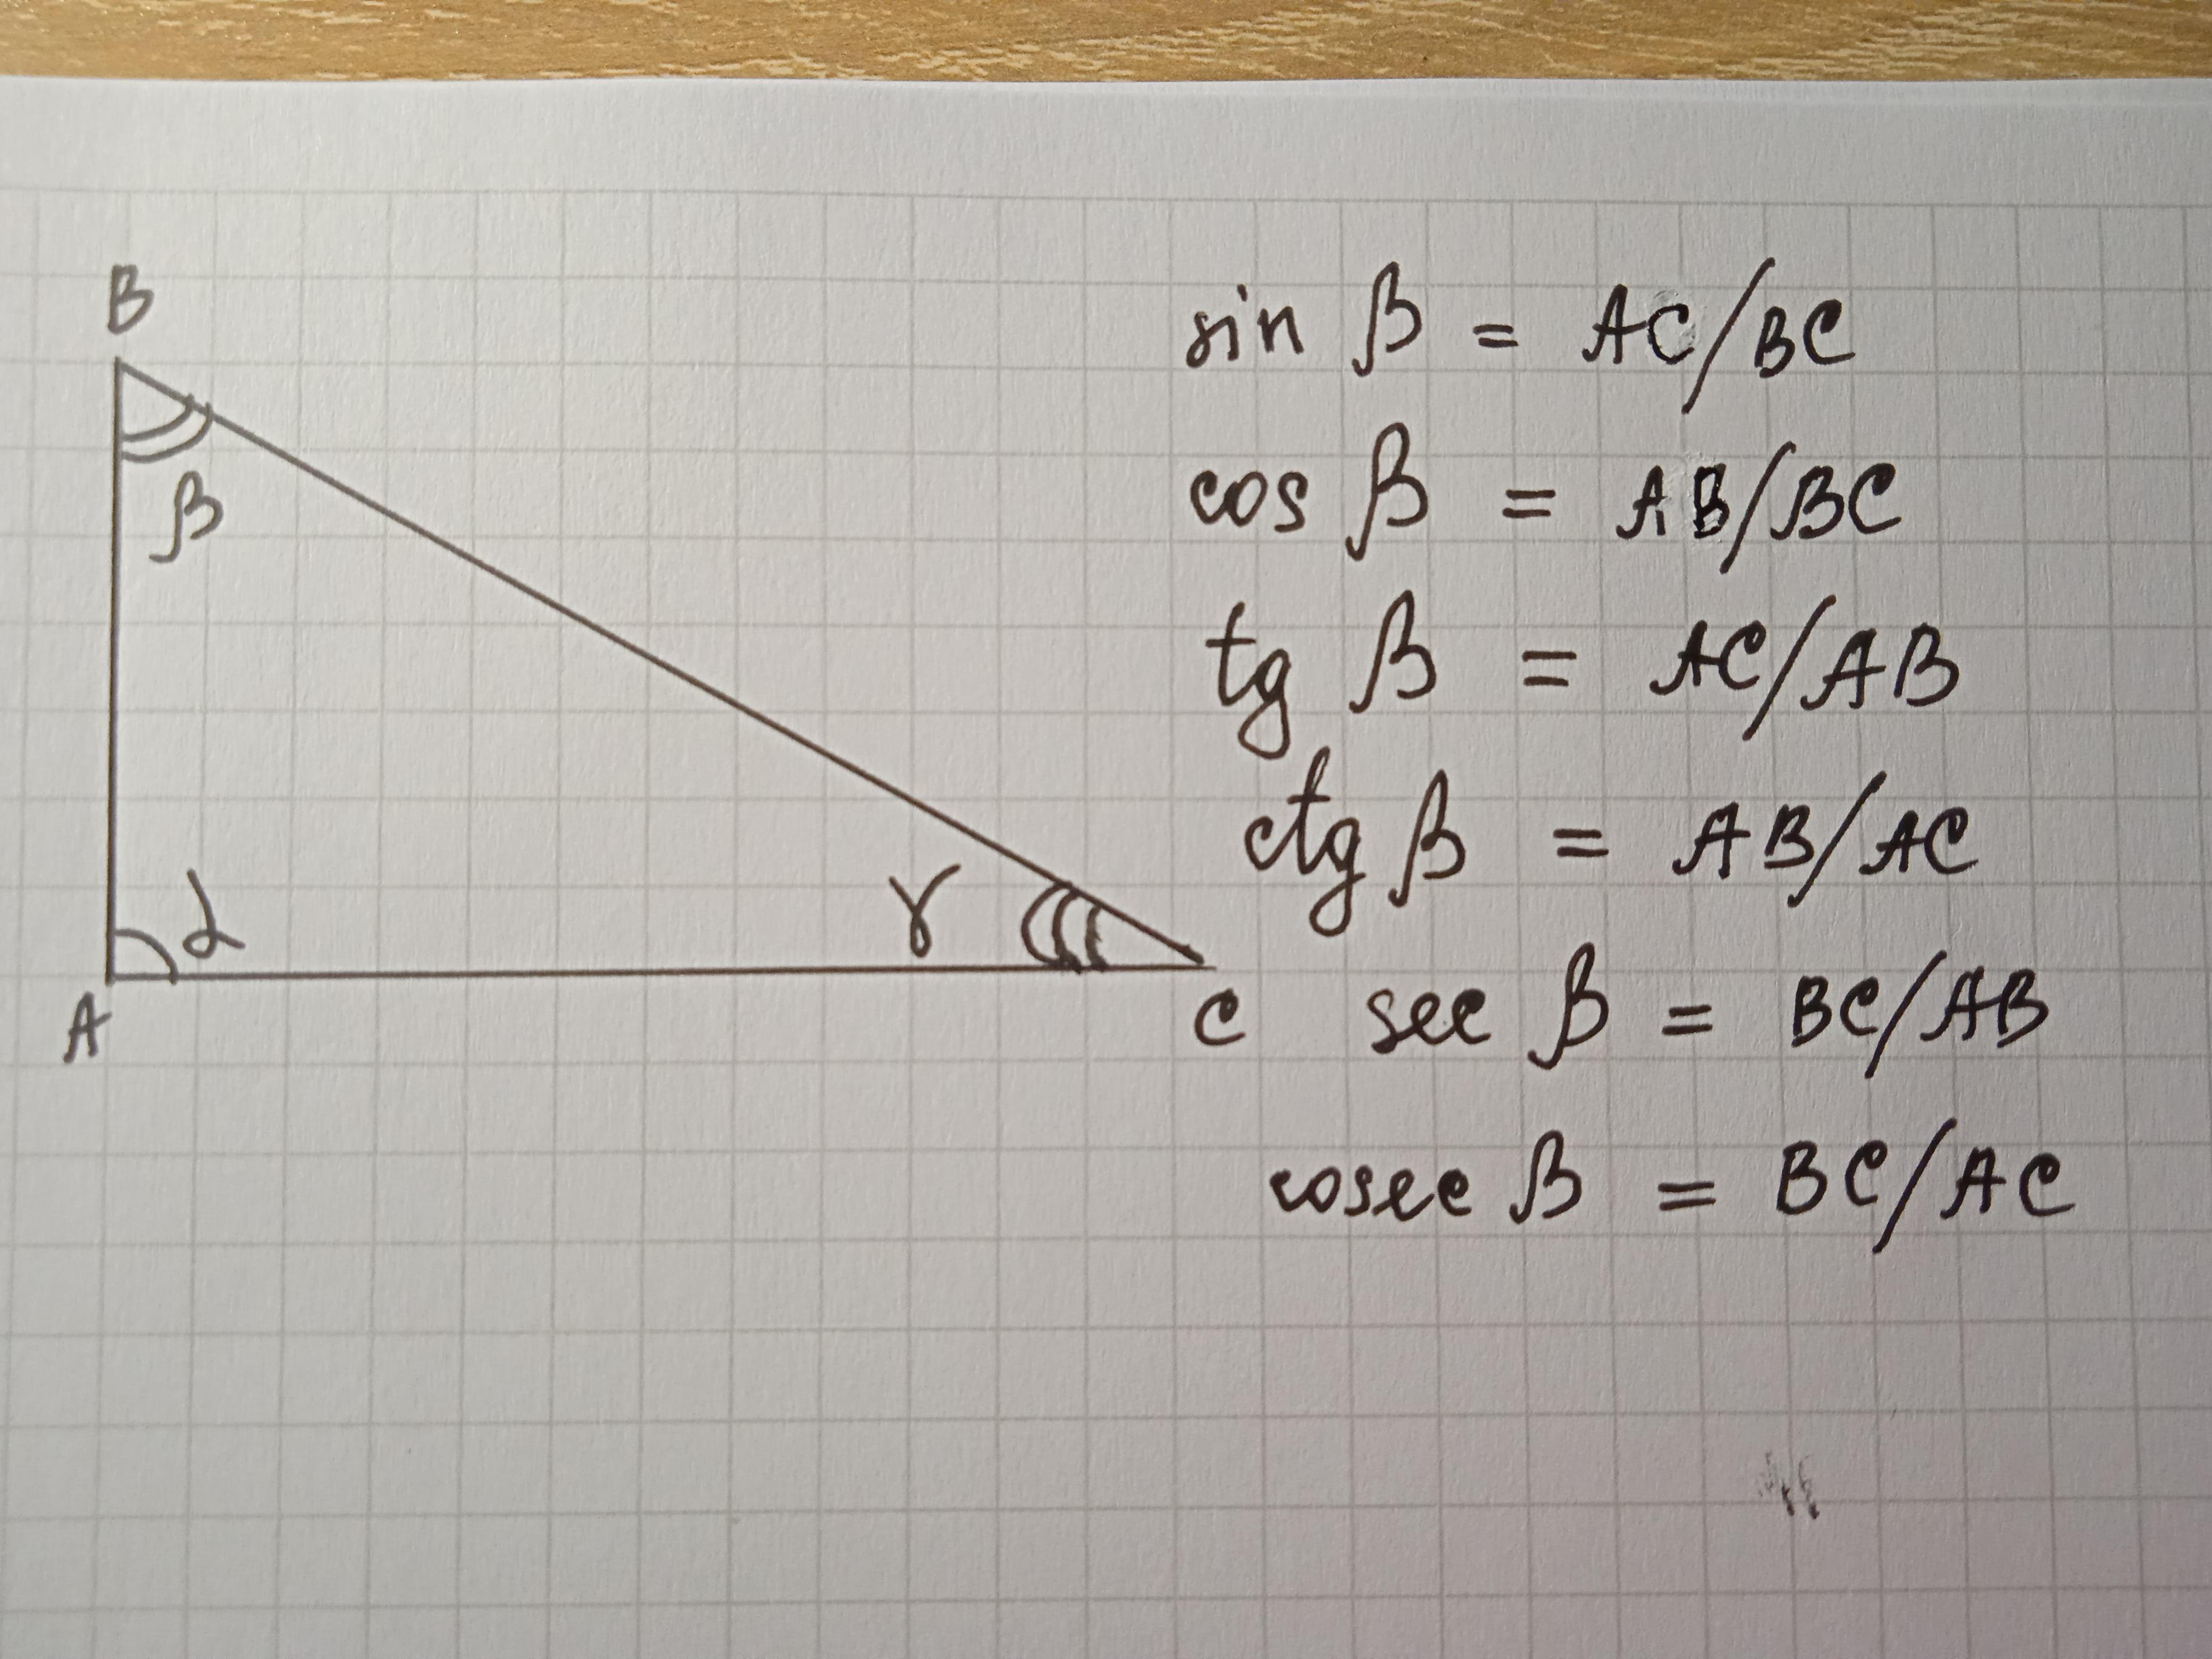 B
sin β = AC/BC
cos β = AB/BC
β
tg β = AC/AB
ctg β = AB/AC
α
γ
A
C
sec β = BC/AB
cosec β = BC/AC